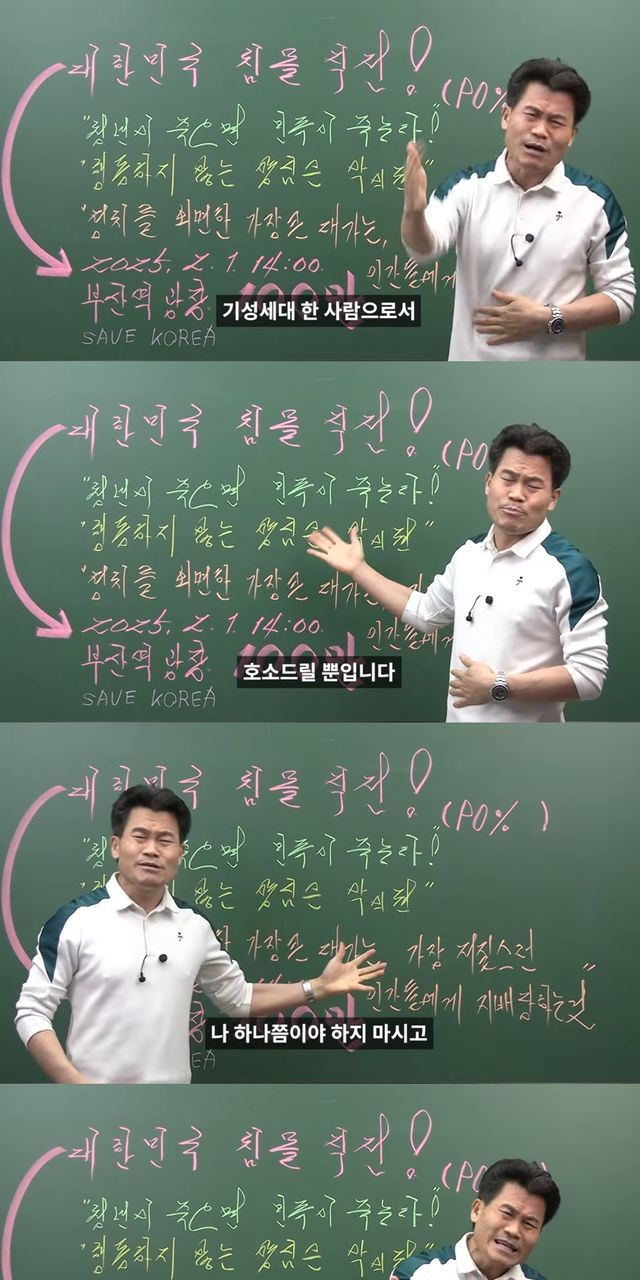 대한민국 침몰 직전!
(90%
"청년이 죽으면 민족이 죽는다!"
"행동하지 않는 양심은 악의 편"
"정치를 외면한 가장 큰 대가는,
인간들에게
2025. 2. 1. 14:00.
부산역 광장 100만
SAVE KOREA
기성세대 한 사람으로서
대한민국 침몰 직전!
"청년이 죽으면 민족이 죽는다!"
"행동하지 않는 양심은 악의 편"
"정치를 외면한 가장 큰 대가는,
인간들에게
2025. 2. 1. 14:00.
부산역 광장 100만
SAVE KOREA
호소드릴 뿐입니다
대한민국 침몰 직전!
(90% )
죽으면 민족이 죽는다!"
않는 양심은 악의 편"
가장 큰 대가는, 가장 저질스런
인간들에게 지배당하는 것"
나 하나쯤이야 하지 마시고
대한민국 침몰 직전!
"청년이 죽으면 민족이 죽는다!"
"행동하지 않는 양심은 악의 편